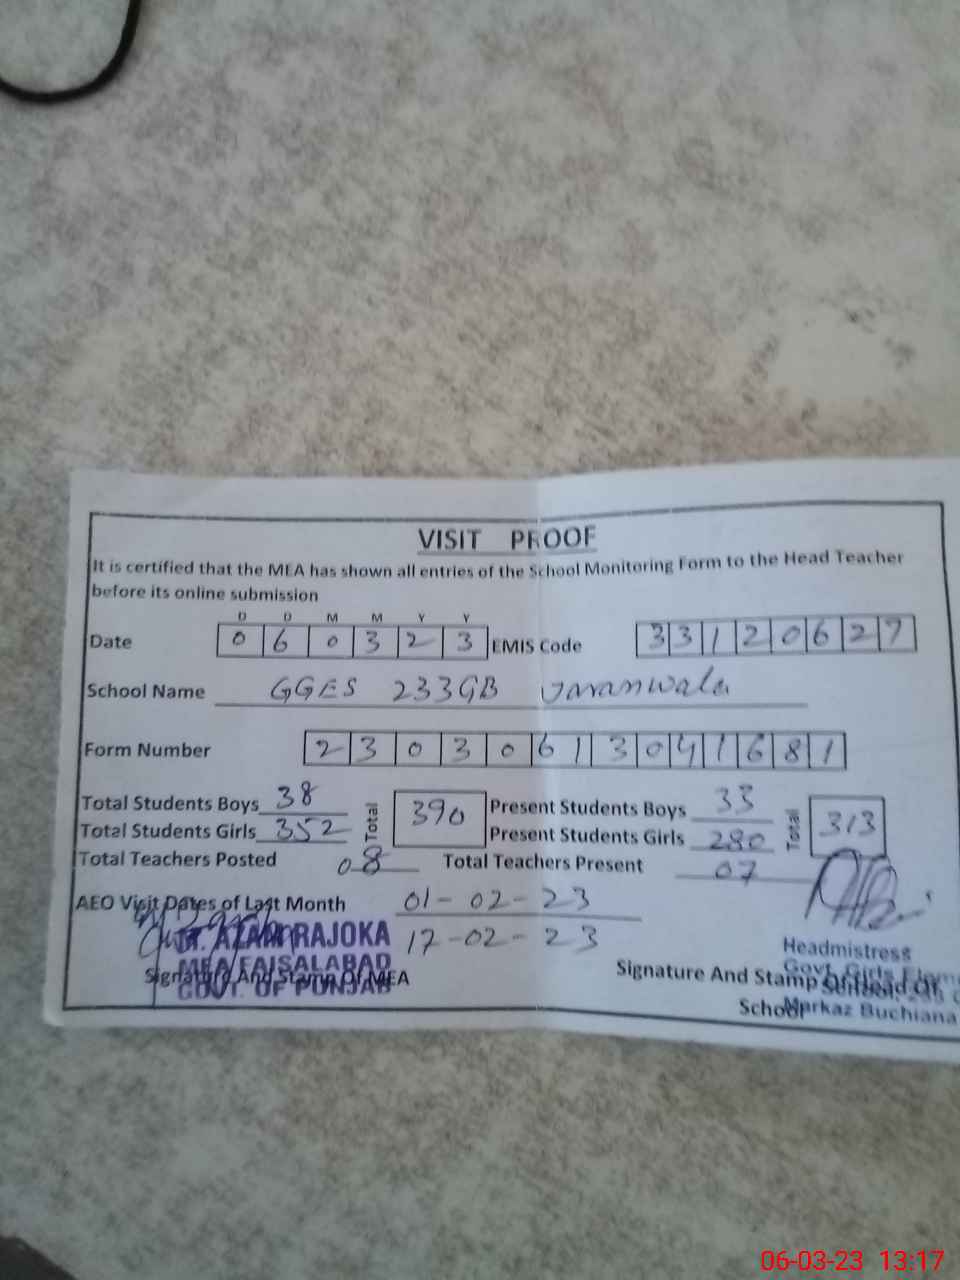 VISIT PROOF
It is certified that the MEA has shown all entries of the School Monitoring Form to the Head Teacher
before its online submission
D D M M Y Y
Date 0 6 0 3 2 3 EMIS Code 3 3 1 2 0 6 2 7
School Name GGES 233GB Jaranwala
Form Number 2 3 0 3 0 6 1 3 0 4 1 6 8 1
Total Students Boys 38 Total 390 Present Students Boys 33 Total 313
Total Students Girls 352 Present Students Girls 280
Total Teachers Posted 08 Total Teachers Present 07
AEO Visit Dates of Last Month 01-02-23
17-02-23
RAJOKA
MEA FAISALABAD
GOVT. OF PUNJAB
Signature And Stamp Of MEA
Headmistress
Govt. Girls Elem
Signature And Stamp Of Head Of
School
Markaz Buchiana
06-03-23 13:17